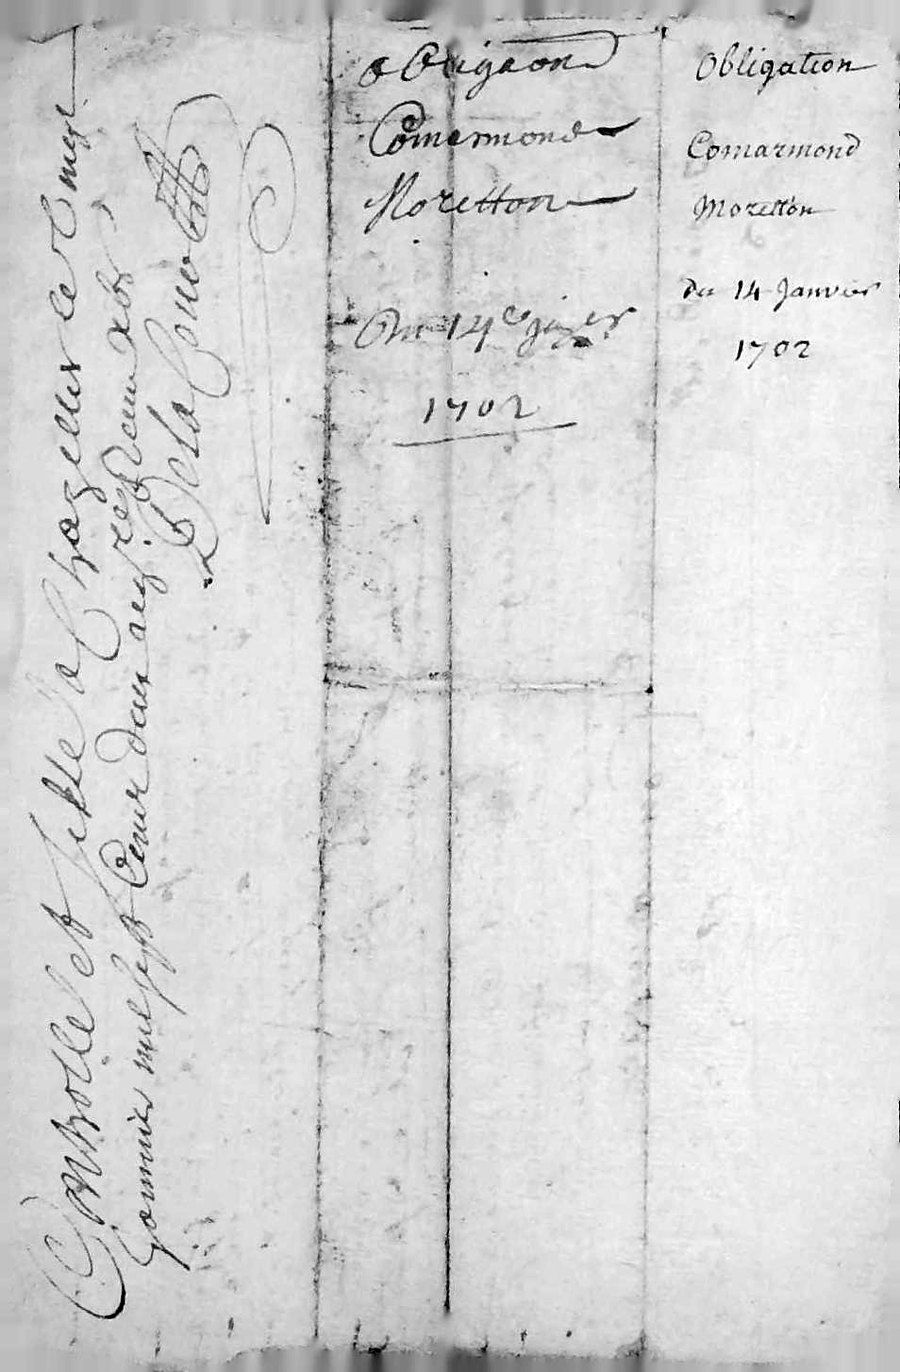 Controllé et sellé a Chazelles ce 
janvier mil sept Cent deux
Dela
obligaon
Comarmond
Moretton
Du 14e jer
1702
Obligation
Comarmond
Moretton
du 14 Janvier
1702